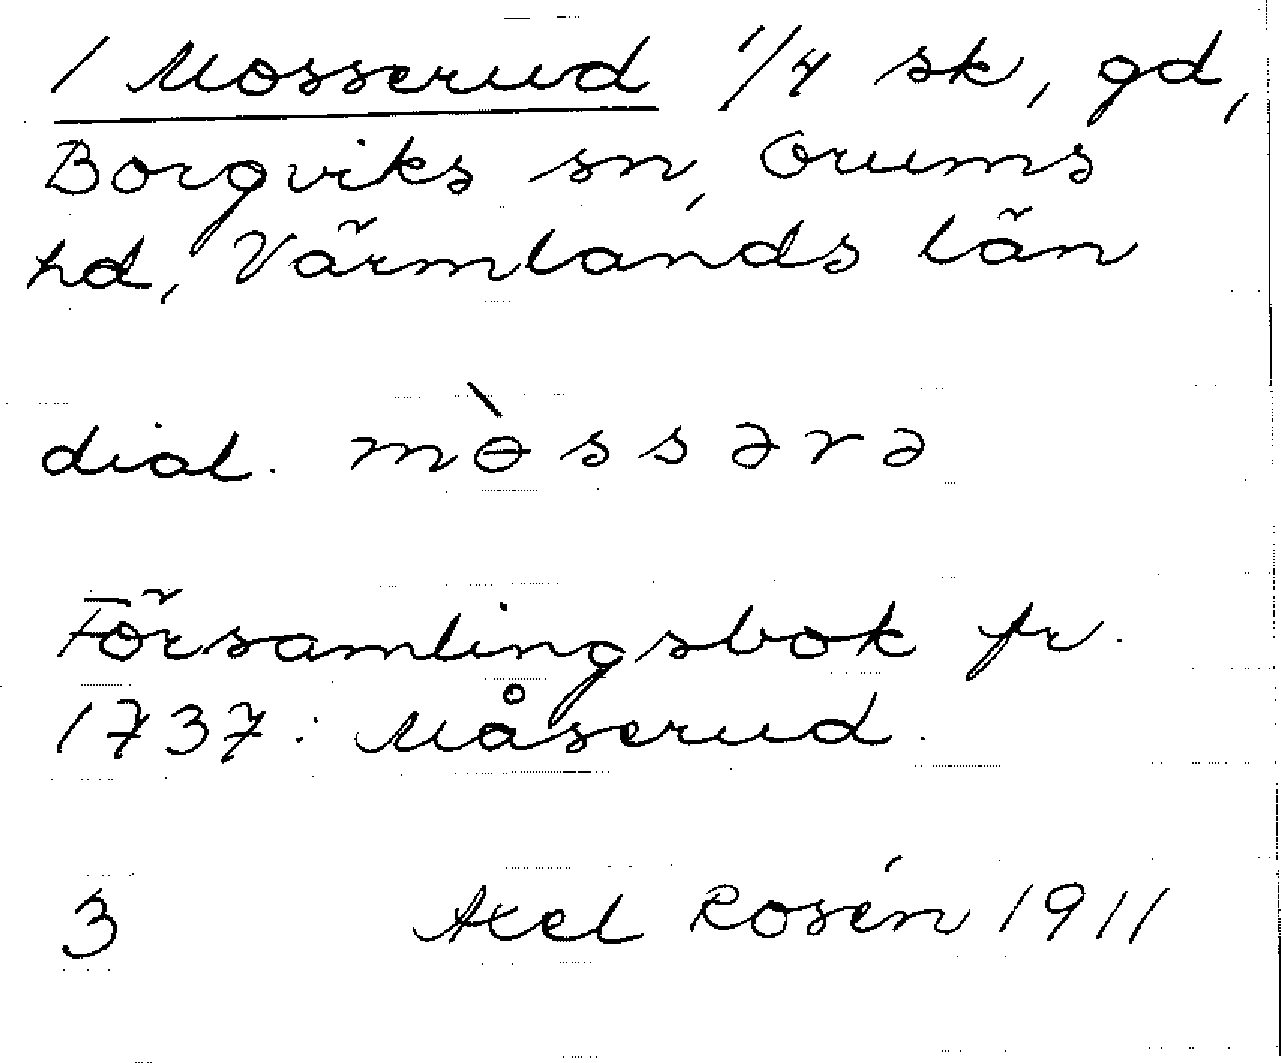 1 Mosserud 1/4 sk, gd,
Borgviks sn, Grums
hd, Värmlands län
dial. mɵ̀ssərə
Församlingsbok fr.
1737: Måserud.
3 Axel Rosén 1911